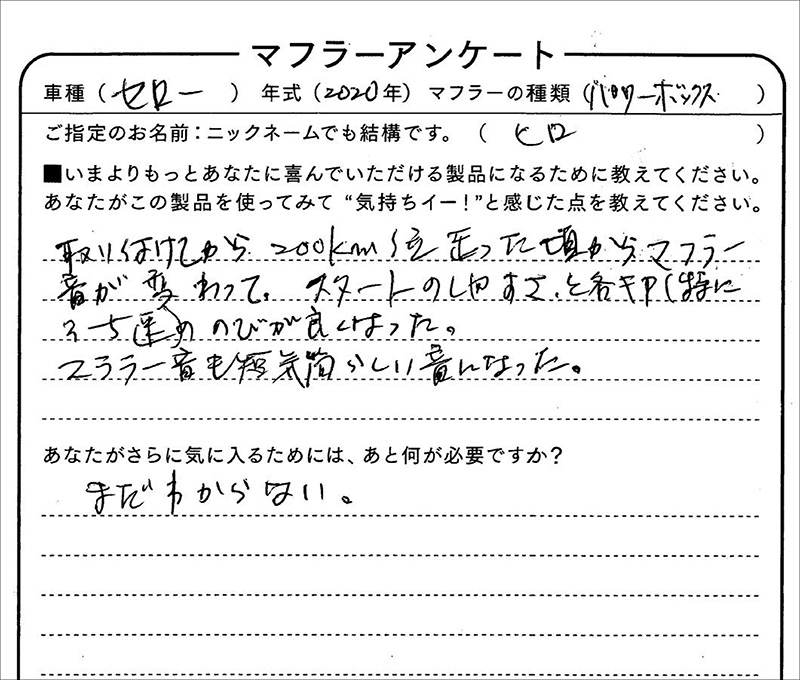 マフラーアンケート
車種(セロー) 年式(2020年) マフラーの種類(パワーボックス)
ご指定のお名前:ニックネームでも結構です。(ヒロ)
■いまよりもっとあなたに喜んでいただける製品になるために教えてください。
あなたがこの製品を使ってみて“気持ちイー!”と感じた点を教えてください。
取り付けしてから200km位走った頃からマフラー
音が変わって、スタートのしやすさ、と各ギア(特に
3-5速)ののびが良くなった。
マフラー音も短気筒らしい音になった。
あなたがさらに気に入るためには、あと何が必要ですか?
まだわからない。